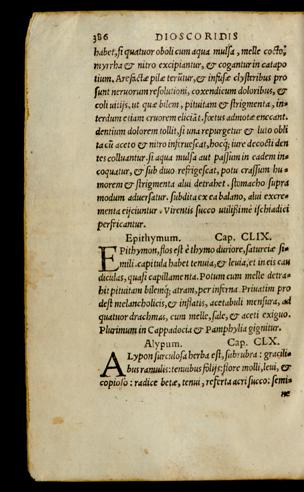 386 DIOSCORIDIS
habet, si quatuor oboli cum aqua mulsa, melle cocto,
myrrha & nitro excipiantur, & cogantur in catapo
tium. Arefactæ pilæ terũtur, & infusæ clysteribus pro
sunt neruorum resolutioni, coxendicum doloribus, &
coli uitijs, ut quæ bilem, pituitam & strigmenta, in-
terdum etiam cruorem eliciãt. fœtus admotæ enecant.
dentium dolorem tollit, si una repurgetur & luto obli
ta cũ aceto & nitro inferuescat, hocq; iure decocti den
tes colluantur. si aqua mulsa aut passum in eadem in-
coquatur, & sub diuo refrigescat, potu crassum hu-
morem & strigmenta alui detrahet. stomacho supra
modum aduersatur. subdita ex ea balano, alui excre-
menta eijciuntur. Virentis succo utilissimè ischiadici
perfricantur.
Epithymum. Cap. CLIX.
EPithymon, flos est è thymo duriore, satureiæ si-
mili. capitula habet tenuia, & leuia, et in eis cau
diculas, quasi capillamenta. Potum cum melle detra-
hit pituitam bilemq; atram, per inferna. Priuatim pro
dest melancholicis, & inflatis, acetabuli mensura, ad
quatuor drachmas, cum melle, sale, & aceti exiguo.
Plurimum in Cappadocia & Pamphylia gignitur.
Alypum. Cap. CLX.
ALypon surculosa herba est, subrubra: gracili-
bus ramulis: tenuibus folijs: flore molli, leui, &
copioso: radice betæ, tenui, referta acri succo: semi-
ne